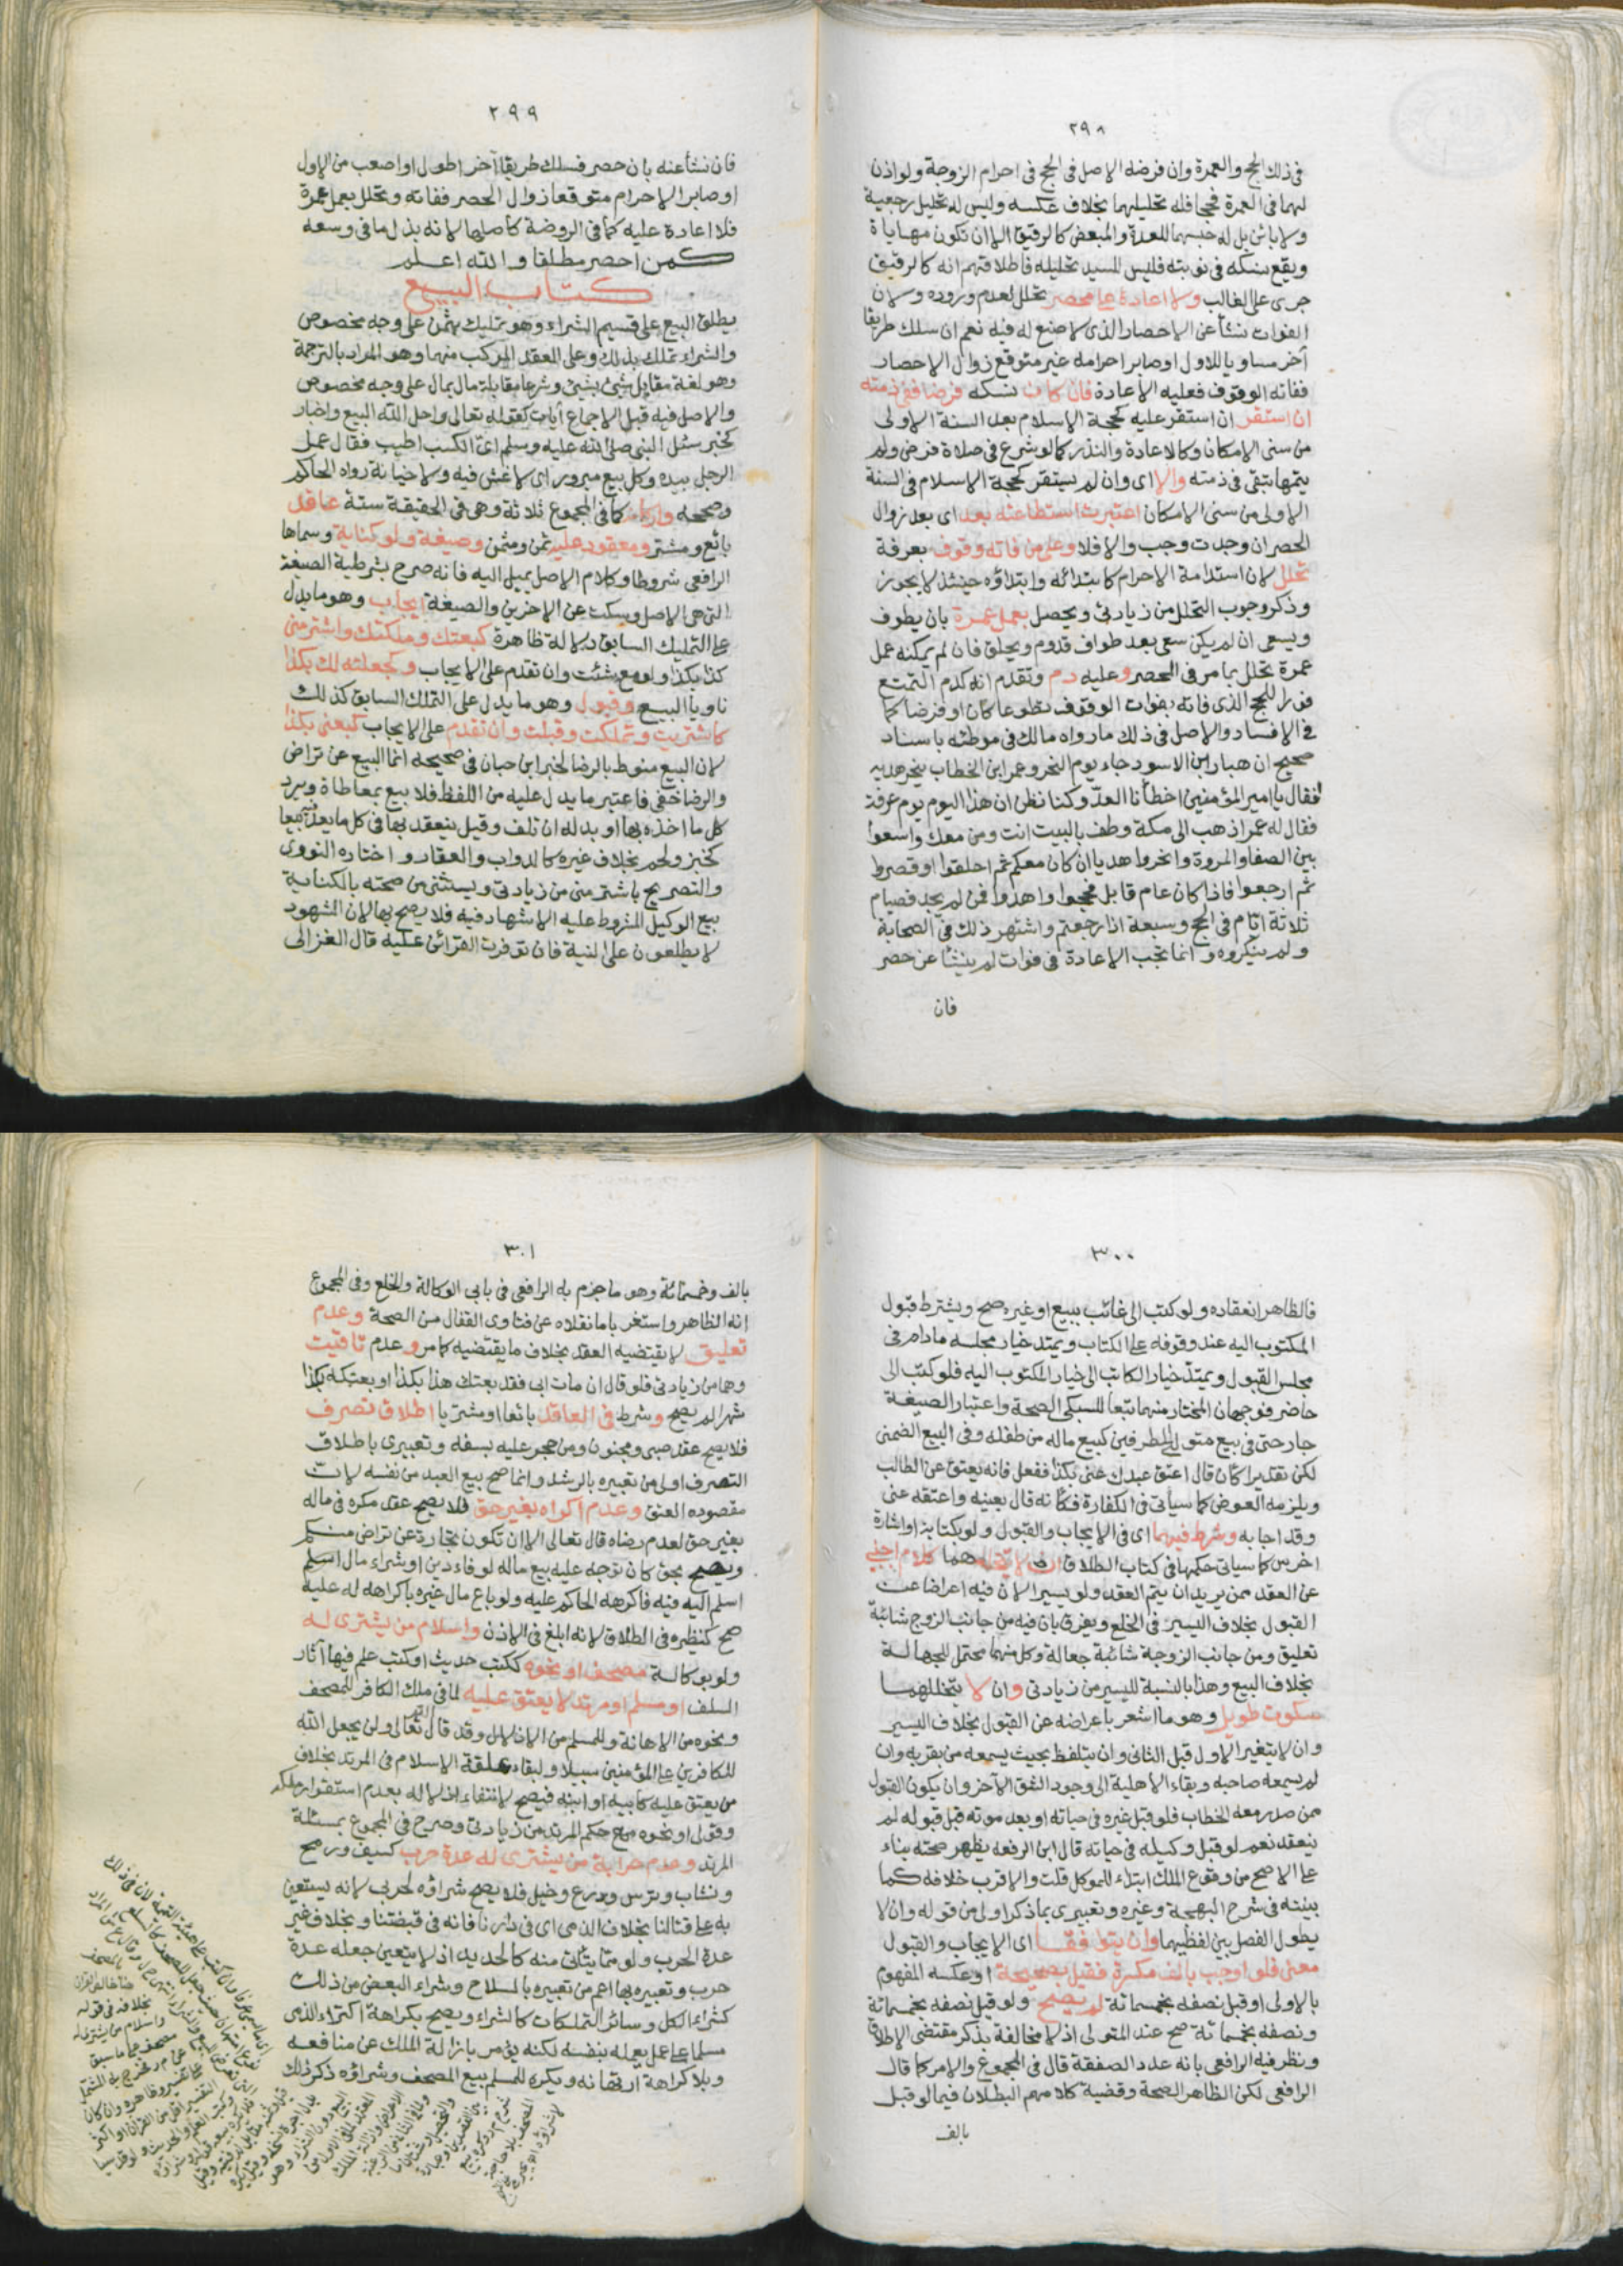 ٢٩٨
في ذلك الحج والعمرة وان فرضه الاصل في الحج في احرام الزوجة ولو اذن
لهما في العمرة فحجا فله تحليلهما بخلاف عكسه وليس له تحليل رجعية
ولا بائن بل له حبسهما للعدة والمبعض كالرقيق الا ان تكون مهاياة
ويقع نسكه في نوبته فليس للسيد تحليله فاطلاقهم انه كالرقيق
جرى على الغالب ولا اعادة على محصر تحلل لعدم وروده ولان
الفوات نشأ عن الاحصار الذي لا صنع له فيه نعم ان سلك طريقا
آخر مساويا للاول او صابر احرامه غير متوقع زوال الاحصار
ففاته الوقوف فعليه الاعادة فان كان نسكه فرضا ففي ذمته
ان استقر ان استقر عليه كحجة الاسلام بعد السنة الاولى
من سني الامكان وكالاعادة والنذر كما لو شرع في صلاة فرض ولم
يتمها تبقى في ذمته والا اي وان لم يستقر كحجة الاسلام في السنة
الاولى من سني الامكان اعتبرت استطاعته بعد اي بعد زوال
الحصر ان وجدت وجب والا فلا وعلى من فاته وقوف بعرفة
تحلل لان استدامة الاحرام كابتدائه وابتداؤه حينئذ لا يجوز
وذكر وجوب التحلل من زيادتي ويحصل بعمل عمرة بان يطوف
ويسعى ان لم يكن سعى بعد طواف قدوم ويحلق فان لم يمكنه عمل
عمرة تحلل بما مر في المحصر وعليه دم وتقدم انه كدم التمتع
فورا للحج الذي فاته بفوات الوقوف تطوعا كان او فرضا كما
في الافساد والاصل في ذلك ما رواه مالك في موطئه باسناد
صحيح ان هبار ابن الاسود جاء يوم النحر وعمر ابن الخطاب ينحر هديه
فقال يا امير المؤمنين اخطأنا العدّ وكنا نظن ان هذا اليوم يوم عرفة
فقال له عمر اذهب الى مكة وطف بالبيت انت ومن معك واسعوا
بين الصفا والمروة وانحروا هديا ان كان معكم ثم احلقوا او قصروا
ثم ارجعوا فاذا كان عام قابل فحجوا واهدوا فمن لم يجد فصيام
ثلاثة ايام في الحج وسبعة اذا رجعتم واشتهر ذلك في الصحابة
ولم ينكروه وانما تجب الاعادة في فوات لم ينشأ عن حصر
فان
٢٩٩
فان نشأ عنه بان حصر فسلك طريقا آخر اطول او اصعب من الاول
او صابر الاحرام متوقعا زوال الحصر ففاته وتحلل بعمل عمرة
فلا اعادة عليه كما في الروضة كأصلها لانه بذل ما في وسعه
كمن احصر مطلقا والله اعلم
كتاب البيع
يطلق البيع على قسيم الشراء وهو تمليك بثمن على وجه مخصوص
والشراء تملك بذلك وعلى العقد المركب منهما وهو المراد بالترجمة
وهو لغة مقابلة شئ بشئ وشرعا مقابلة مال بمال على وجه مخصوص
والاصل فيه قبل الاجماع آيات كقوله تعالى واحل الله البيع واخبار
كخبر سئل النبي صلى الله عليه وسلم اي الكسب اطيب فقال عمل
الرجل بيده وكل بيع مبرور اي لا غش فيه ولا خيانة رواه الحاكم
وصححه واركانه كما في المجموع ثلاثة وهي في الحقيقة ستة عاقد
بائع ومشتر ومعقود عليه ثمن ومثمن وصيغة ولو كناية وسماها
الرافعي شروطا وكلام الاصل يميل اليه فانه صرح بشرطية الصيغة
التي هي الاصل وسكت عن الاخرين والصيغة ايجاب وهو ما يدل
على التمليك السابق دلالة ظاهرة كبعتك وملكتك واشتر مني
كذا بكذا ولو مع شئت وان تقدم على الايجاب وكجعلته لك بكذا
ناويا البيع وقبول وهو ما يدل على التملك السابق كذلك
كاشتريت وتملكت وقبلت وان تقدم على الايجاب كبعني بكذا
لان البيع منوط بالرضا لخبر ابن حبان في صحيحه انما البيع عن تراض
والرضا خفي فاعتبر ما يدل عليه من اللفظ فلا بيع بمعاطاة ويرد
كل ما اخذه بها او بدله ان تلف وقيل ينعقد بها في كل ما يعد فيه بيعا
كخبز ولحم بخلاف غيره كالدواب والعقار واختاره النووي
والتصريح باشتر مني من زيادتي ويستثنى من صحته بالكناية
بيع الوكيل المشروط عليه الاشهاد فيه فلا يصح بها لان الشهود
لا يطلعون على النية فان توفرت القرائن عليه قال الغزالي
٣٠٠
فالظاهر انعقاده ولو كتب الى غائب ببيع او غيره صح ويشترط قبول
المكتوب اليه عند وقوفه على الكتاب ويمتد خيار مجلسه ما دام في
مجلس القبول ويمتد خيار الكاتب الى خيار المكتوب اليه فلو كتب الى
حاضر فوجهان المختار منهما تبعا للسبكي الصحة واعتبار الصيغة
جار حتى في بيع متولي الطرفين كبيع ماله من طفله وفي البيع الضمني
لكن تقديرا كأن قال اعتق عبدك عني بكذا ففعل فانه يعتق عن الطالب
ويلزمه العوض كما سيأتي في الكفارة فكأنه قال بعنيه واعتقه عني
وقد اجابه وشرط فيهما اي في الايجاب والقبول ولو بكتابة او اشارة
اخرس كما سيأتي حكمها في كتاب الطلاق ان لا يتخللهما كلام اجنبي
عن العقد ممن يريد ان يتم العقد ولو يسيرا لان فيه اعراضا عن
القبول بخلاف اليسير في الخلع ويفرق بان فيه من جانب الزوج شائبة
تعليق ومن جانب الزوجة شائبة جعالة وكل منهما محتمل للجهالة
بخلاف البيع وهذا بالنسبة لليسير من زيادتي وان لا يتخللهما
سكوت طويل وهو ما اشعر باعراضه عن القبول بخلاف اليسير
وان لا يتغير الاول قبل الثاني وان يتلفظ بحيث يسمعه من بقربه وان
لم يسمعه صاحبه وبقاء الاهلية الى وجود الشق الآخر وان يكون القبول
ممن صدر معه الخطاب فلو قبل غيره في حياته او بعد موته قبل قبوله لم
ينعقد نعم لو قبل وكيله في حياته قال ابن الرفعه يظهر صحته بناء
على الاصح من وقوع الملك ابتداء للموكل قلت والاقرب خلافه كما
بينته في شرح البهجة وغيره وتعبيري بما ذكر اولى من قوله وان لا
يطول الفصل بين لفظيهما وان يتوافقا اي الايجاب والقبول
معنى فلو اوجب بالف مكسرة فقبل بصحيحة او عكسه المفهوم
بالاولى او قبل نصفه بخمسمائة لم يصح ولو قبل نصفه بخمسمائة
ونصفه بخمسمائة صح عند المتولي اذ لا مخالفة بذكر مقتضى الاطلاق
ونظر فيه الرافعي بانه عدد الصفقة قال في المجموع والامر كما قال
الرافعي لكن الظاهر الصحة وقضية كلامهم البطلان فيما لو قبل
بالف
٣٠١
بالف وخمسمائة وهو ما جزم به الرافعي في بابي الوكالة والخلع وفي المجموع
انه الظاهر واستغربا ما نقلاه عن فتاوى القفال من الصحة وعدم
تعليق لا يقتضيه العقد بخلاف ما يقتضيه كما مر وعدم تاقيت
وهما من زيادتي فلو قال ان مات ابي فقد بعتك هذا بكذا او بعتكه بكذا
شهرا لم يصح وشرط في العاقد بائعا او مشتريا اطلاق تصرف
فلا يصح عقد صبي ومجنون ومن حجر عليه بسفه وتعبيري باطلاق
التصرف اولى من تعبيره بالرشد وانما صح بيع العبد من نفسه لان
مقصوده العتق وعدم اكراه بغير حق فلا يصح عقد مكره في ماله
بغير حق لعدم رضاه قال تعالى الا ان تكون تجارة عن تراض منكم
ويصح بحق كان توجه عليه بيع ماله لوفاء دين او شراء مال اسلم
اسلم اليه فيه فاكرهه الحاكم عليه ولو باع مال غيره باكراهه له عليه
صح كنظيره في الطلاق لانه ابلغ في الاذن واسلام من يشترى له
ولو بوكالة مصحف او نحوه ككتب حديث او كتب علم فيها آثار
السلف او مسلم او مرتد لا يعتق عليه لما في ملك الكافر للمصحف
ونحوه من الاهانة وللمسلم من الاذلال وقد قال الله تعالى ولن يجعل الله
للكافرين على المؤمنين سبيلا ولبقاء علقة الاسلام في المرتد بخلاف
من يعتق عليه كابيه او ابنه فيصح لانتفاء اذلاله بعدم استقرار ملكه
وقولي او نحوه مع حكم المرتد من زيادتي وصرح في المجموع بمسئلة
المرتد وعدم حرابة من يشترى له عدة حرب كسيف ورمح
ونشاب وترس ودرع وخيل فلا يصح شراؤه لحربي لانه يستعين
به على قتالنا بخلاف الذمي اي في دارنا فانه في قبضتنا وبخلاف غير
عدة الحرب ولو مما يتأتى منه كالحديد اذ لا يتعين جعله عدة
حرب وتعبيره بها اعم من تعبيره بالسلاح وشراء البعض من ذلك
كشراء الكل وسائر التملكات كالشراء ويصح بكراهة اكتراء الذمي
مسلما على عمل يعمله بنفسه لكنه يؤمر بازالة الملك عن منافعه
وبلا كراهة ارتهانه ويكره للمسلم بيع المصحف وشراؤه ذكر ذلك